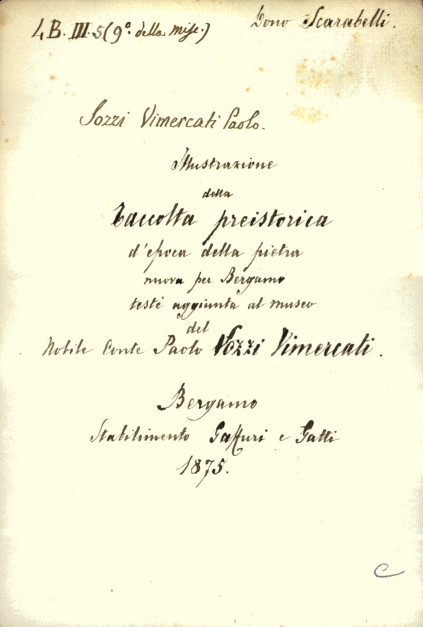 4 B. III. 5 (9°. della misc.)
Dono Scarabelli.
Sozzi Vimercati Paolo.
Illustrazione
della
Raccolta preistorica
d'epoca della pietra
nuova per Bergamo
testè aggiunta al museo
del
Nobile Conte Paolo Vozzi Vimercati.
Bergamo
Stabilimento Gaffuri e Gatti
1875.
C